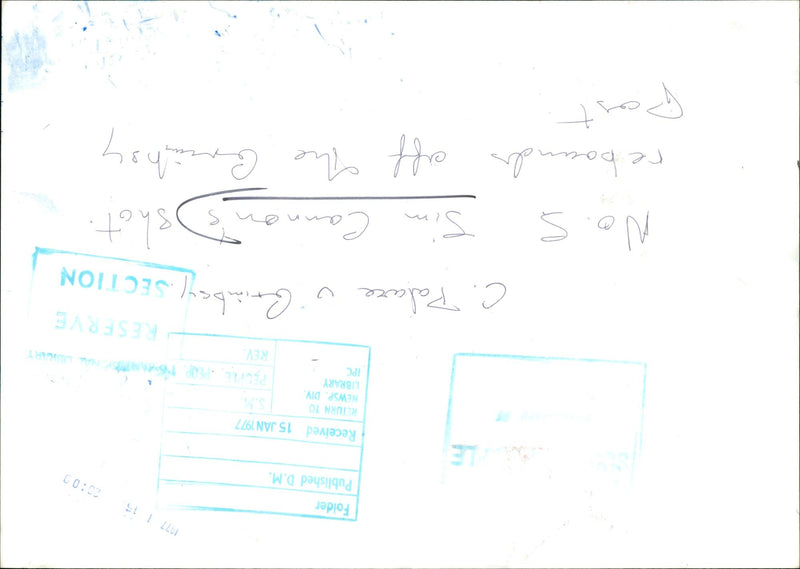 C. Palace v Grimbsy.
No. 5 Jim Cannon's shot.
rebounds off the Grimbsy
Post
RESERVE
SECTION
Folder
Published D.M.
Received 15 JAN 1977
RETURN TO
NEWSP. DIV.
LIBRARY
IPC
S.M.
PEOPLE
REV.
1977 1 15